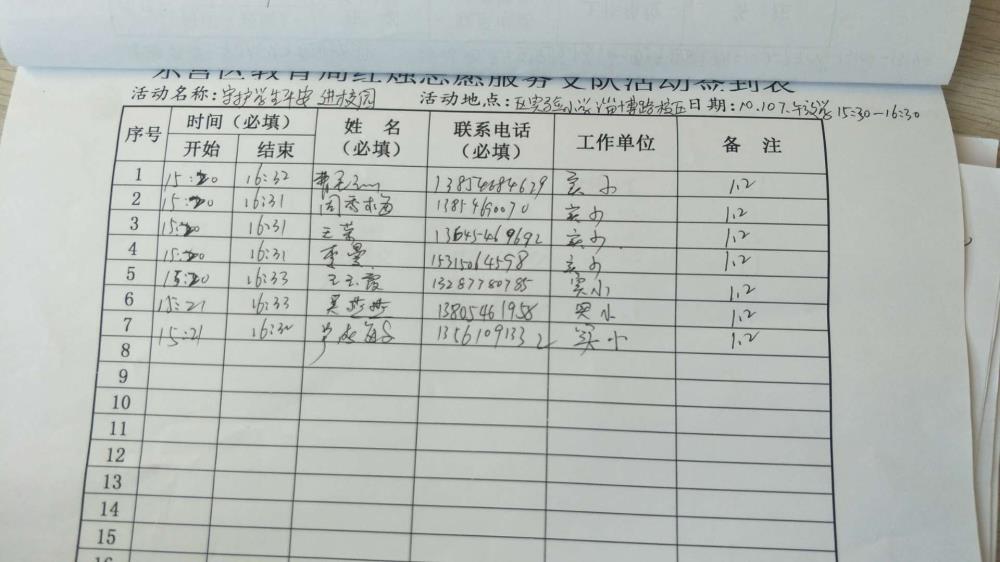 东营区教育局红烛志愿服务支队活动签到表
活动名称：守护学生平安 进校园 活动地点：区实验小学淄博路校区 日期：10.10 15:30-16:30
序号 时间（必填） 姓名（必填） 联系电话（必填） 工作单位 备注
开始 结束
1 15:20 16:32 13854684629 实小 1.2
2 15:20 16:31 周秀梅 13854690070 实小 1.2
3 15:20 16:31 王荣 13645469692 实小 1.2
4 15:20 16:31 李曼 15315064598 实小 1.2
5 15:20 16:33 王玉霞 13287780785 实小 1.2
6 15:21 16:33 吴燕燕 13805461958 实小 1.2
7 15:21 16:32 13561091332 实小 1.2
8
9
10
11
12
13
14
15
16